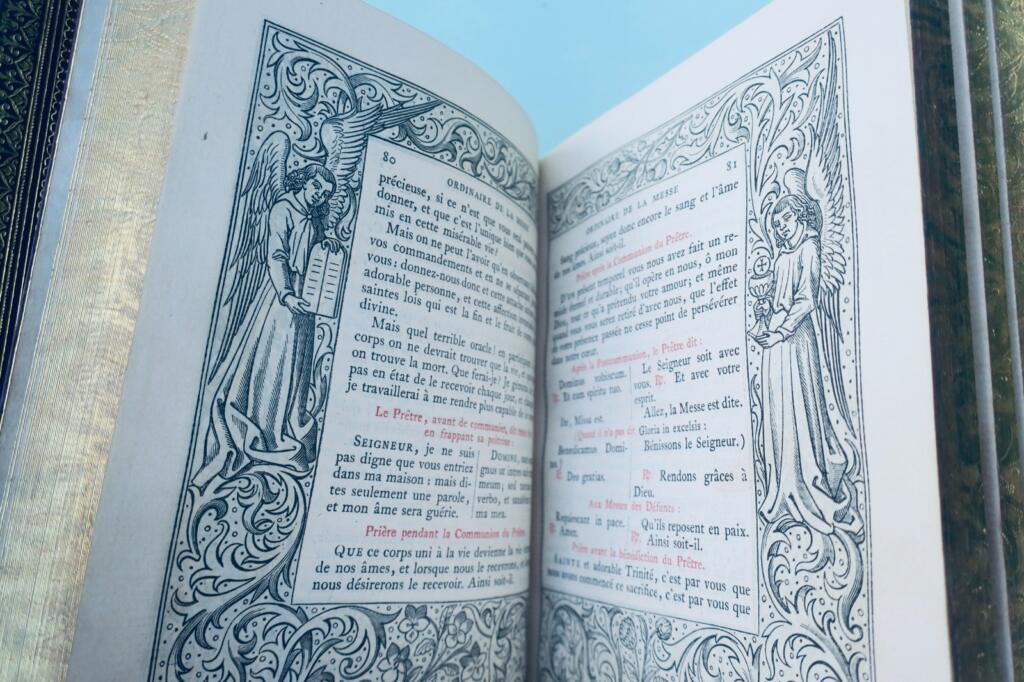 80
ORDINAIRE DE LA
précieuse, si ce n'est que vous me
donner, et que c'est l'unique bien que
mis en cette misérable vie?
Mais on ne peut l'avoir qu'en
vos commandements et en ne se
vous: donnez-nous donc et cette
adorable personne, et cette affection
saintes lois qui est la fin et le fruit de
divine.
Mais quel terrible oracle! en
corps on ne devrait trouver que la vie, et
on trouve la mort. Que ferai-je? Je
pas en état de recevoir chaque jour, et
je travaillerai à me rendre plus capable de
Le Prêtre, avant de communier, dit
en frappant sa poitrine:
SEIGNEUR, je ne suis
pas digne que vous entriez
dans ma maison: mais di-
tes seulement une parole,
et mon âme sera guérie.
DOMINE, non
gnus ut intres
meum; sed
verbo, et
ma mea.
Prière pendant la Communion du Prêtre.
QUE ce corps uni à la vie devienne la vie
de nos âmes, et lorsque nous le recevrons, et
nous désirerons le recevoir. Ainsi soit-il.
81
ORDINAIRE DE LA MESSE
précieux, soyez donc encore le sang et l'âme
de nos âmes. Ainsi soit-il.
Prière après la Communion du Prêtre.
Qu'un présent temporel vous nous avez fait un re-
mède éternel et durable; qu'il opère en nous, ô mon
Dieu, tout ce qu'a prétendu votre amour; et même
quand vous vous serez retiré d'avec nous, que l'effet
de votre présence passée ne cesse point de persévérer
dans notre cœur.
Après la Postcommunion, le Prêtre dit:
Dominus vobiscum.
℟. Et cum spiritu tuo.
Ite, Missa est.
Le Seigneur soit avec
vous. ℟. Et avec votre
esprit.
Allez, la Messe est dite.
(Quand il n'a pas dit Gloria in excelsis:
Benedicamus Domi-
℟. Deo gratias.
Bénissons le Seigneur.)
℟. Rendons grâces à
Dieu.
Aux Messes des Défunts:
Requiescant in pace.
℟. Amen.
Qu'ils reposent en paix.
℟. Ainsi soit-il.
Prière avant la bénédiction du Prêtre.
SAINTE et adorable Trinité, c'est par vous que
nous avons commencé ce sacrifice, c'est par vous que